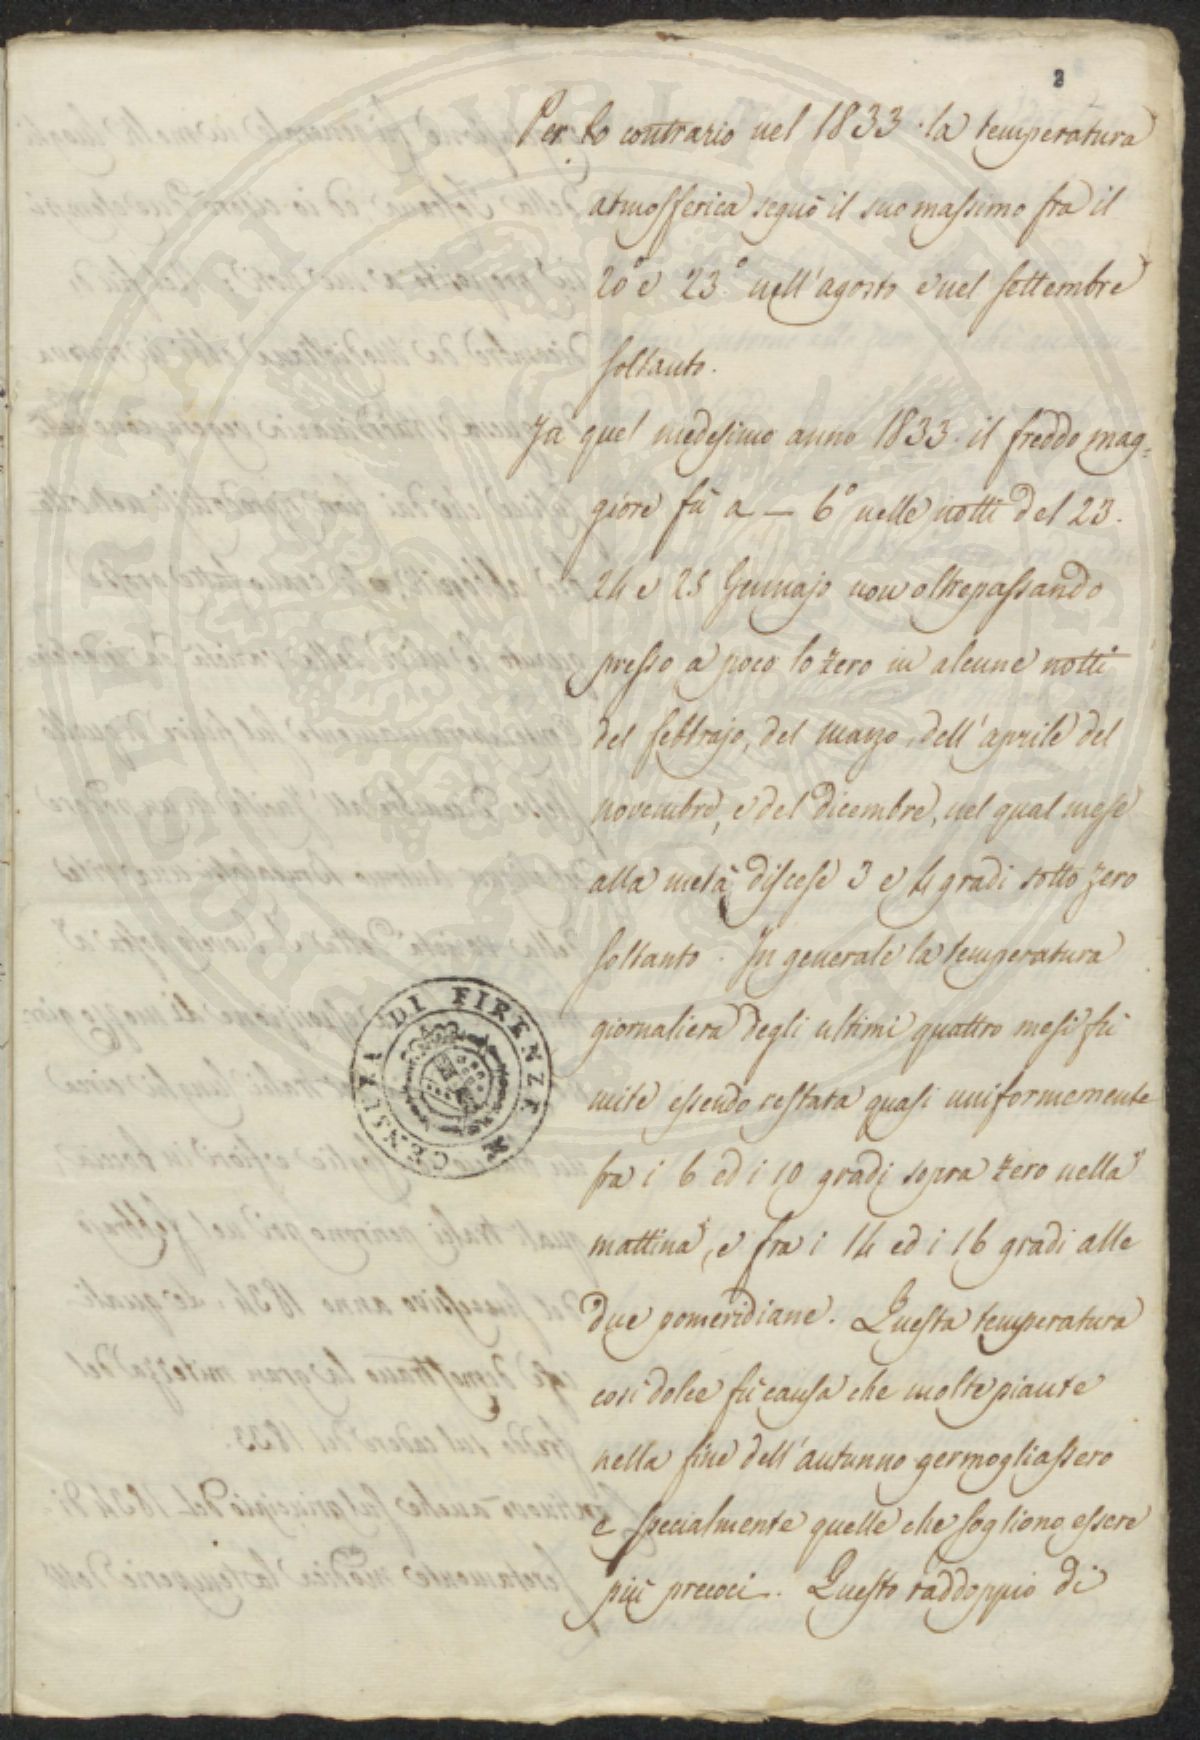 2
Per lo contrario nel 1833. la temperatura
atmosfferica seguò il suo massimo fra il
20° e 23.° nell'agosto e nel settembre
soltanto.
In quel medesimo anno 1833. il freddo mag=
giore fù a — 6° nelle notti del 23.
24 e 25 Gennajo non oltrepassando
presso a poco lo zero in alcune notti
del febbrajo, del marzo, dell'aprile del
novembre, e del dicembre, nel qual mese
alla metà discese 3 e 4 gradi sotto zero
soltanto. In generale la temperatura
giornaliera degli ultimi quattro mesi fù
mite essendo restata quasi uniformemente
fra i 6 ed i 10 gradi sopra zero nella
mattina, e fra i 14 ed i 16 gradi alle
due pomeridiane. Questa temperatura
così dolce fù causa che molte piante
nella fine dell'autunno germogliassero
e specialmente quelle che sogliono essere
più precoci. Questo raddoppio di
CENSURA DI FIRENZE